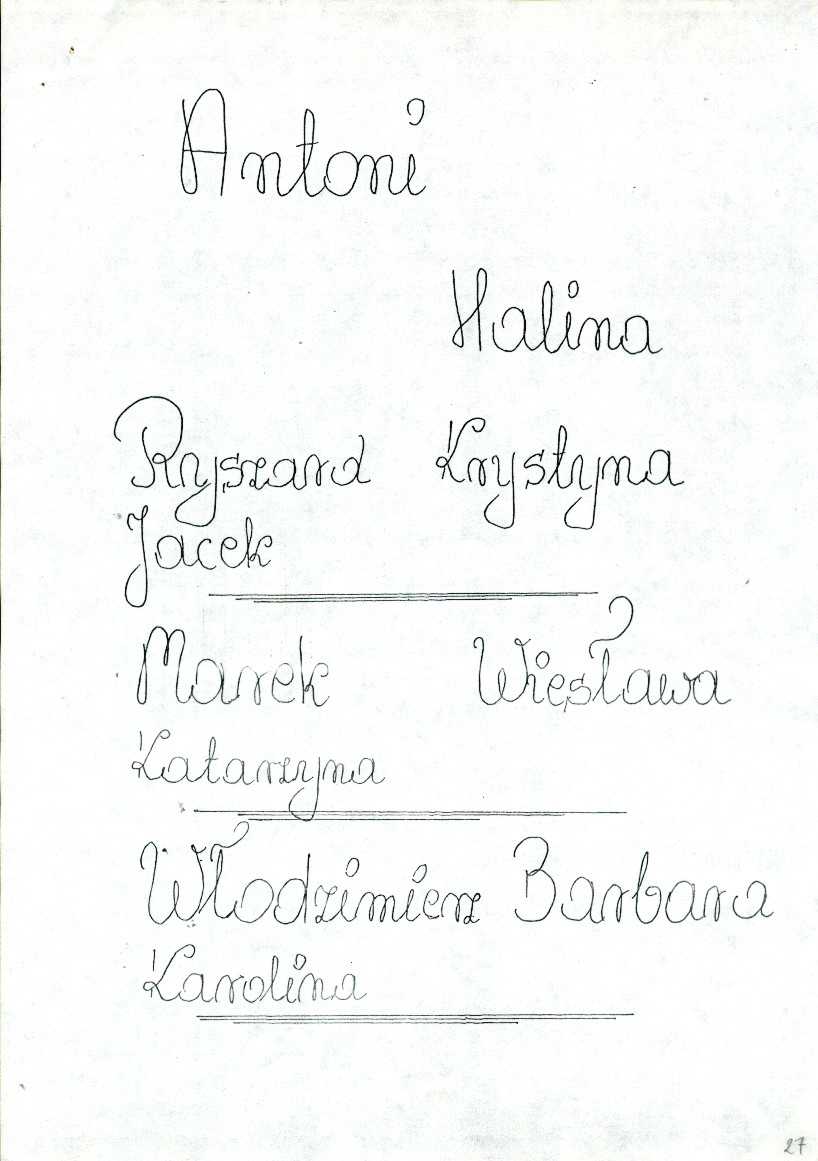 Antoni
Halina
Ryszard Krystyna
Jacek
Marek Wiesława
Katarzyna
Włodzimierz Barbara
Karolina
27